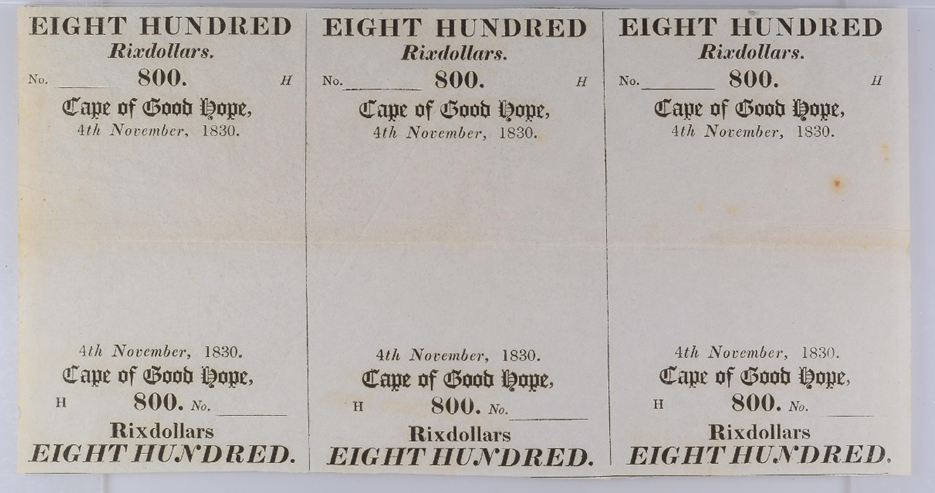 EIGHT HUNDRED
Rixdollars.
No. ______ 800. H
Cape of Good Hope,
4th November, 1830.
4th November, 1830.
Cape of Good Hope,
H 800. No. ______
Rixdollars
EIGHT HUNDRED.
EIGHT HUNDRED
Rixdollars.
No. ______ 800. H
Cape of Good Hope,
4th November, 1830.
4th November, 1830.
Cape of Good Hope,
H 800. No. ______
Rixdollars
EIGHT HUNDRED.
EIGHT HUNDRED
Rixdollars.
No. ______ 800. H
Cape of Good Hope,
4th November, 1830.
4th November, 1830.
Cape of Good Hope,
H 800. No. ______
Rixdollars
EIGHT HUNDRED.